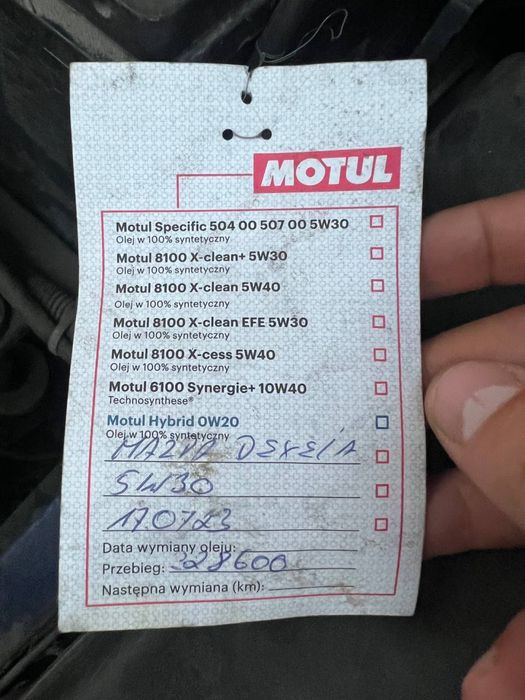 MOTUL
Motul Specific 504 00 507 00 5W30
Olej w 100% syntetyczny
Motul 8100 X-clean+ 5W30
Olej w 100% syntetyczny
Motul 8100 X-clean 5W40
Olej w 100% syntetyczny
Motul 8100 X-clean EFE 5W30
Olej w 100% syntetyczny
Motul 8100 X-cess 5W40
Olej w 100% syntetyczny
Motul 6100 Synergie+ 10W40
Technosynthese®
Motul Hybrid 0W20
Olej w 100% syntetyczny
MAZDA DEXELIA
5W30
170723
Data wymiany oleju:
Przebieg: 328600
Następna wymiana (km):